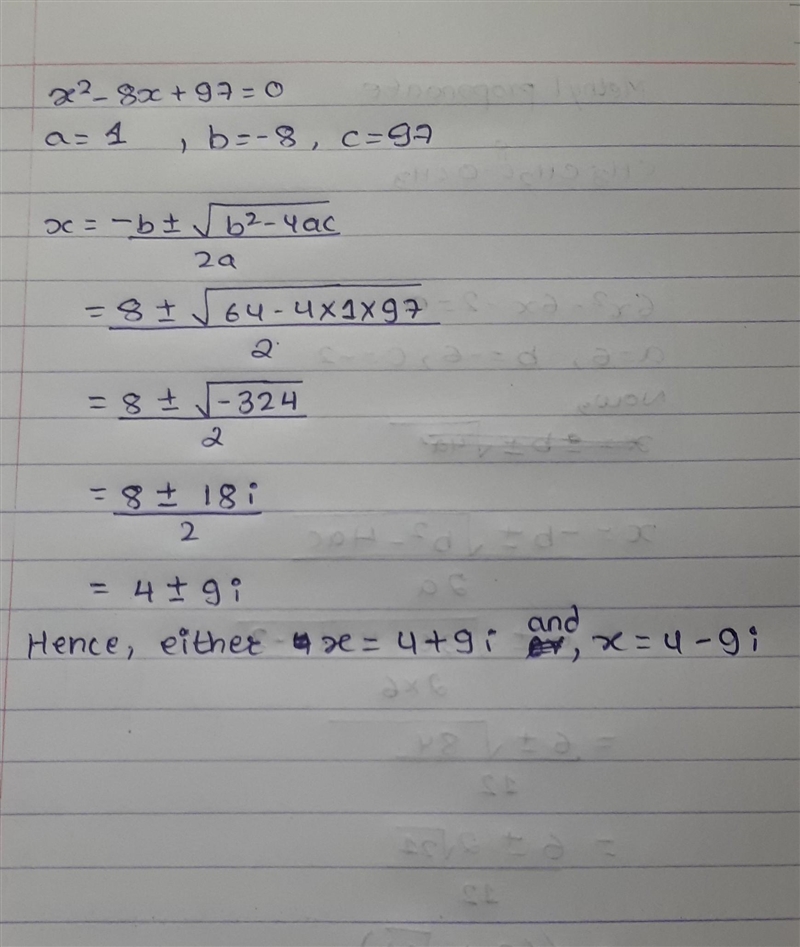 x² - 8x + 97 = 0
a = 1 , b = -8 , c = 97
x = -b ± √b² - 4ac
2a
= 8 ± √64 - 4×1×97
2
= 8 ± √-324
2
= 8 ± 18i
2
= 4 ± 9i
Hence, either x = 4 + 9i and, x = 4 - 9i